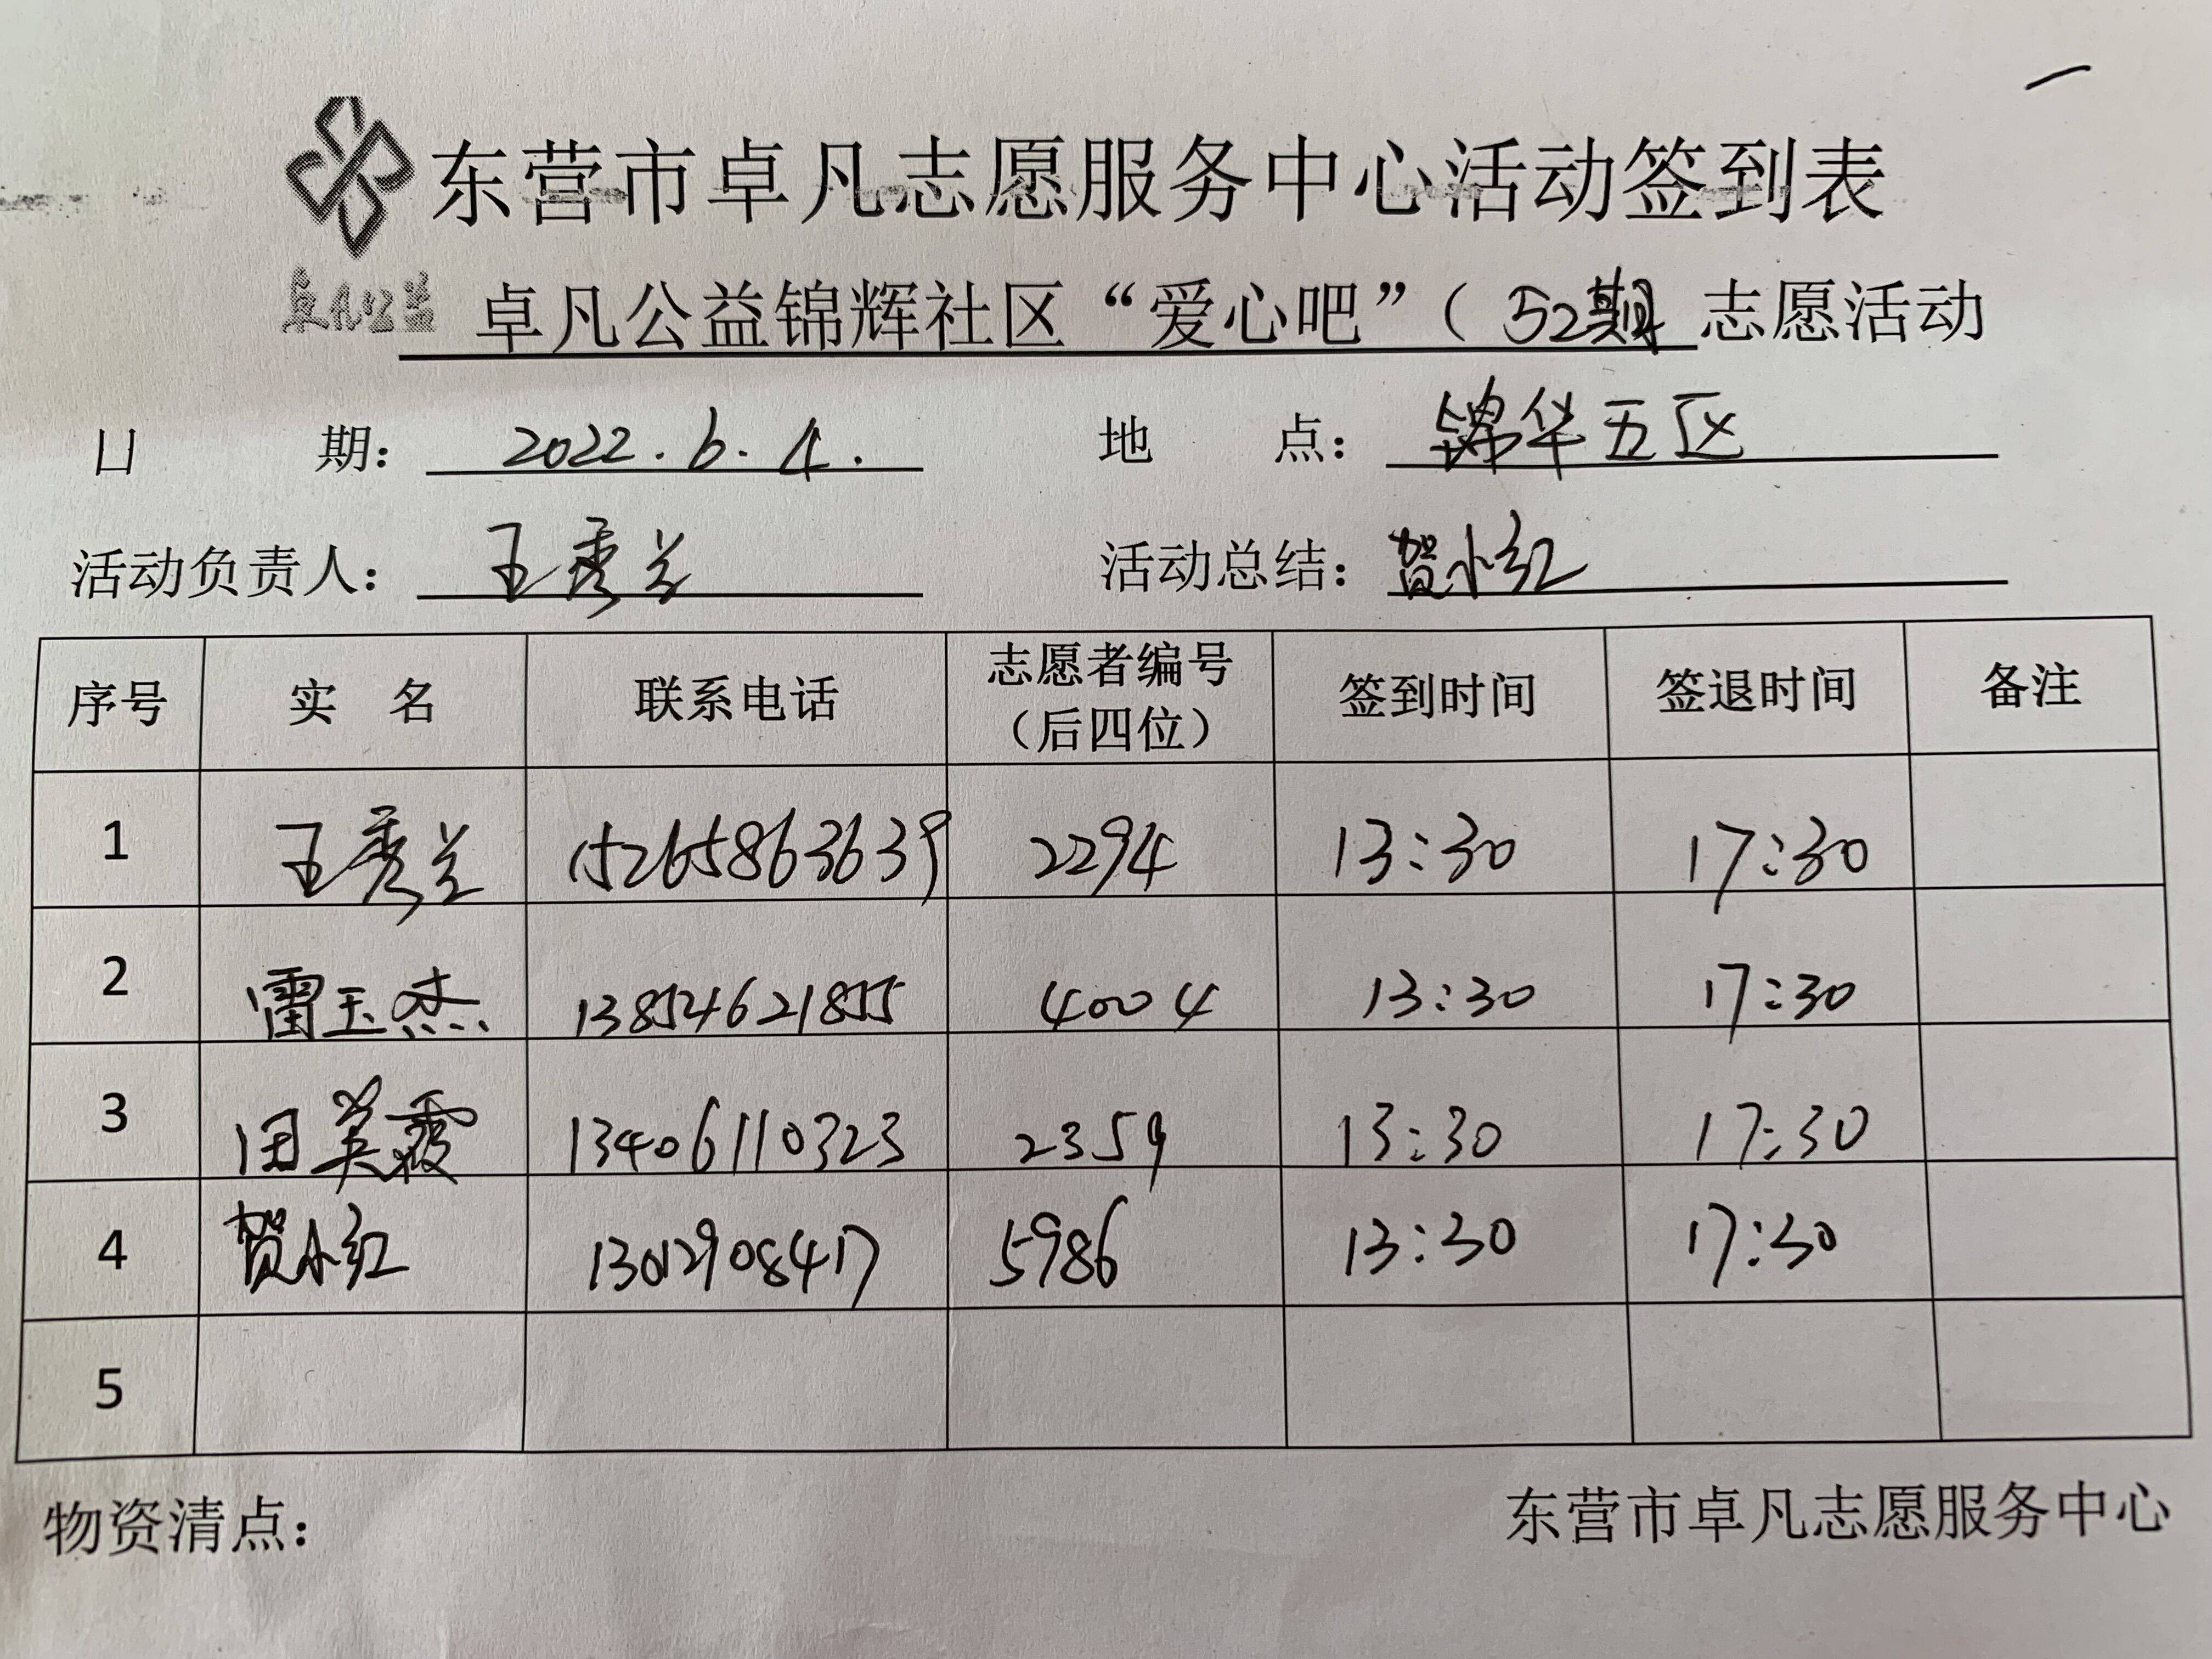 东营市卓凡志愿服务中心活动签到表
卓凡公益
卓凡公益锦辉社区“爱心吧”（52期 志愿活动
日 期： 2022.6.4. 地 点： 锦华五区
活动负责人： 王秀兰 活动总结： 贺小红
序号 实 名 联系电话 志愿者编号（后四位） 签到时间 签退时间 备注
1 王秀兰 15265863639 2294 13:30 17:30
2 雷玉杰 13854621855 4004 13:30 17:30
3 田英霞 13406110323 2359 13:30 17:30
4 贺小红 13012908417 5986 13:30 17:30
5
物资清点： 东营市卓凡志愿服务中心